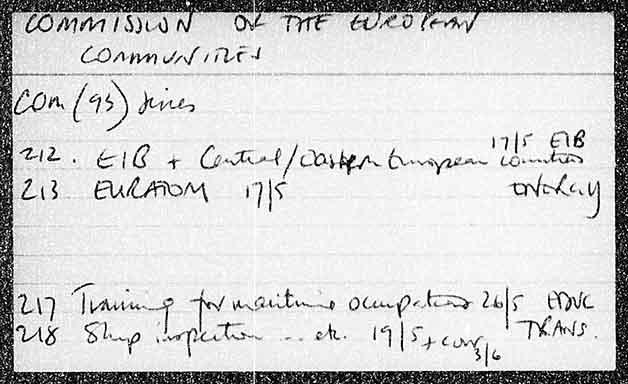 COMMISSION OF THE EUROPEAN
COMMUNITIES
COM (93) Series
17/5 EIB
212. EIB + Central/Eastern European Countries
213 EURATOM 17/5 ENERGY
217 Training for maritime occupations 26/5 EDUC
218 Ship inspection .. etc. 19/5 + corr 3/6 TRANS.